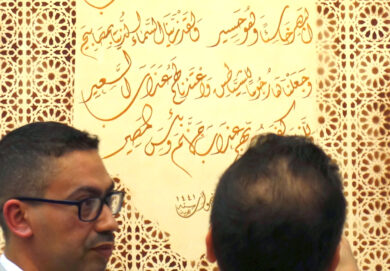 البصر خاسئا وهو حسير ولقد زينا السماء الدنيا بمصابيح
وجعلناها رجوما للشياطين واعتدنا لهم عذاب السعير
كفروا بربهم عذاب جهنم وبئس المصير
سنة ١٤٤١